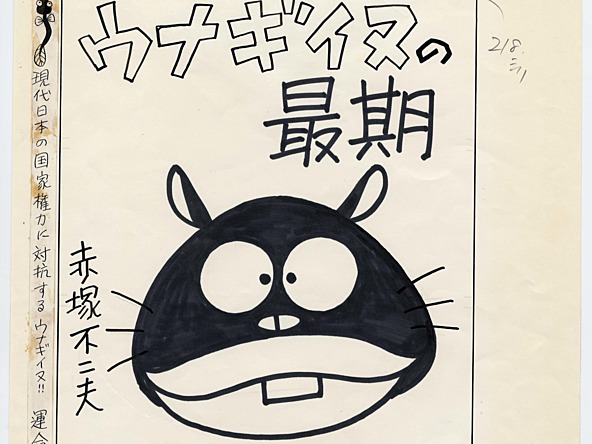 ウナギイヌの
最期
赤塚不二夫
現代日本の国家権力に対抗するウナギイヌ!! 運命
218.